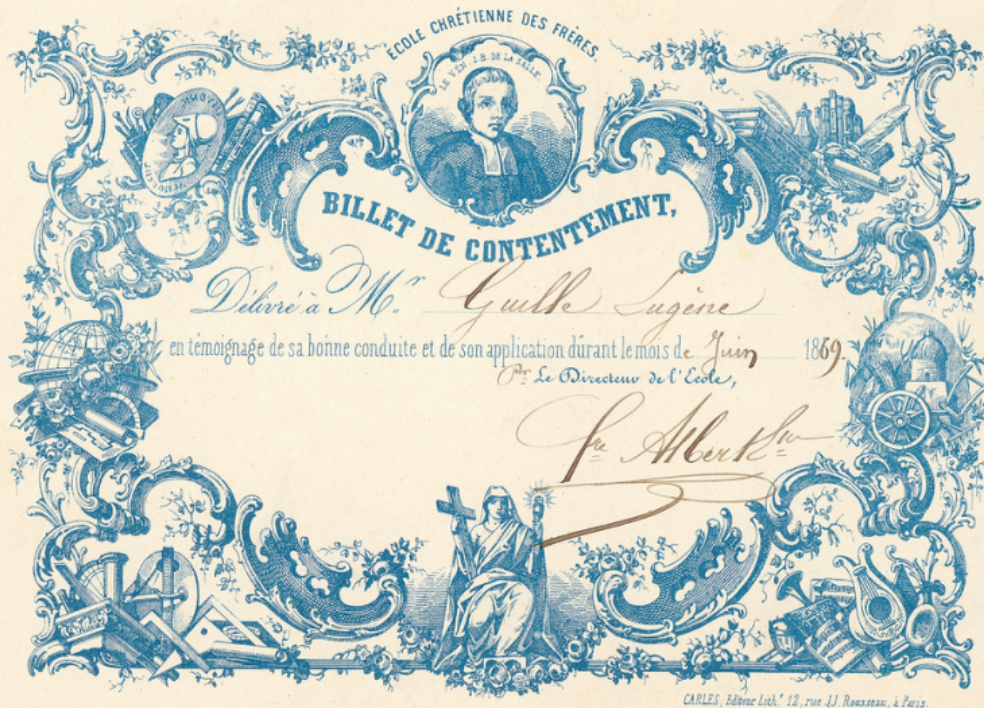 ÉCOLE CHRÉTIENNE DES FRÈRES
LE VEN. J.B. DE LA SALLE
BILLET DE CONTENTEMENT,
Délivré à Mr. Guille Eugène
en témoignage de sa bonne conduite et de son application dùrant le mois de Juin 1869.
Pr Le Directeur de l'Ecole,
fre Albert
CARLES, Editeur Lith. 12, rue J.J. Rousseau, à Paris.